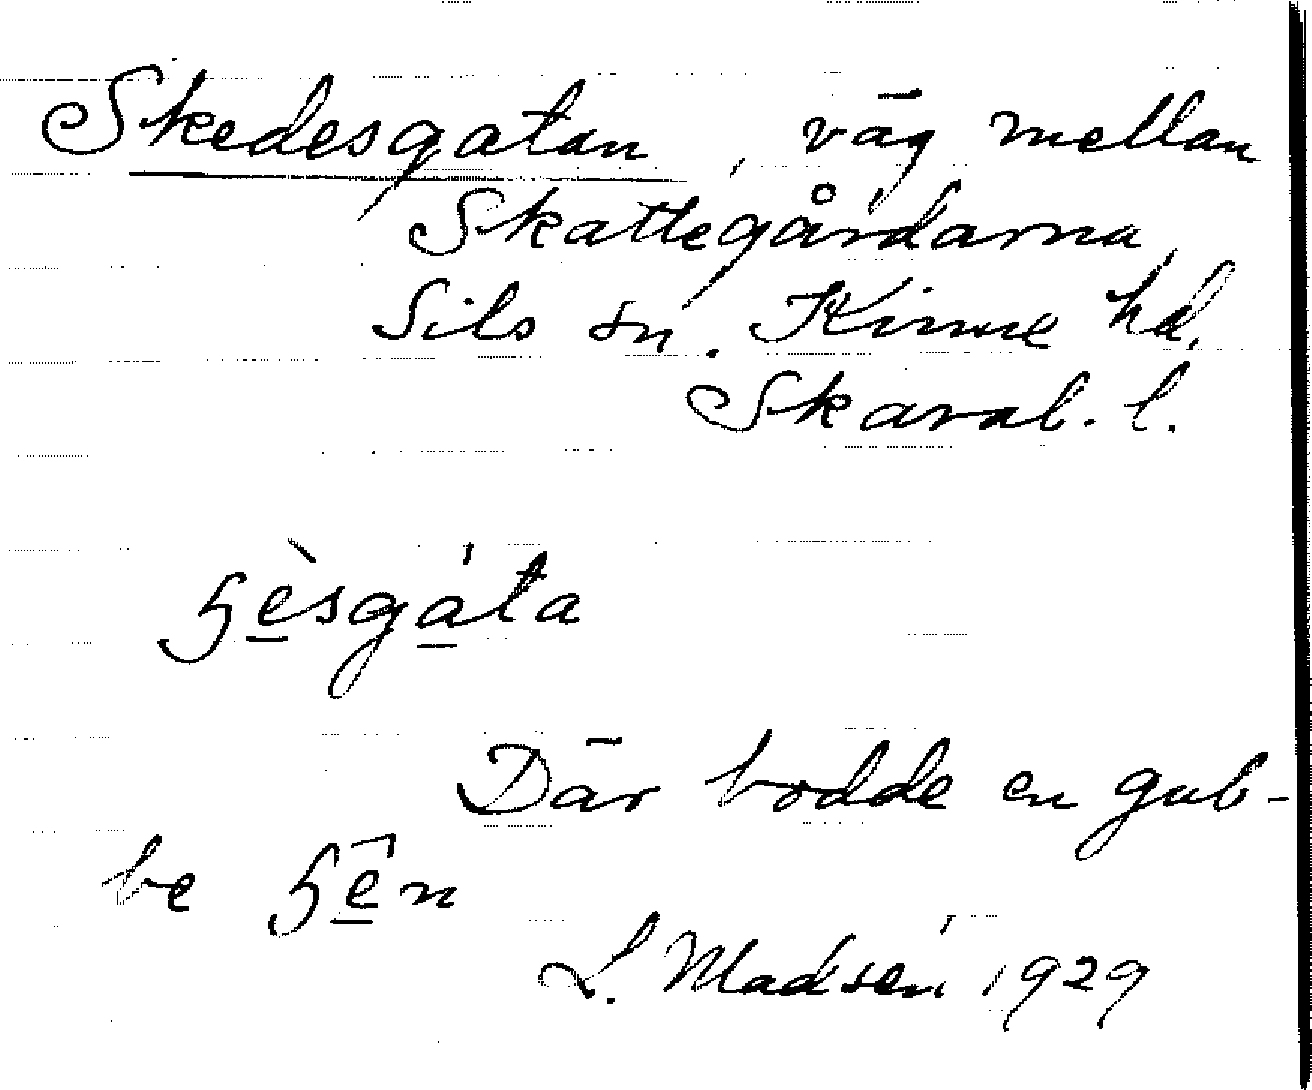 Skedesgatan, väg mellan
Skattegårdarna,
Sils sn. Kinne hd,
Skarab. l.
ɧèsgáta
Där bodde en gub-
be ɧen
L. Madsén 1929